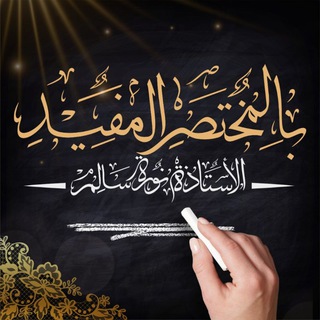 بِالمُخْتَصَرِ المُفِيدِ
الأستاذة نورة سالم